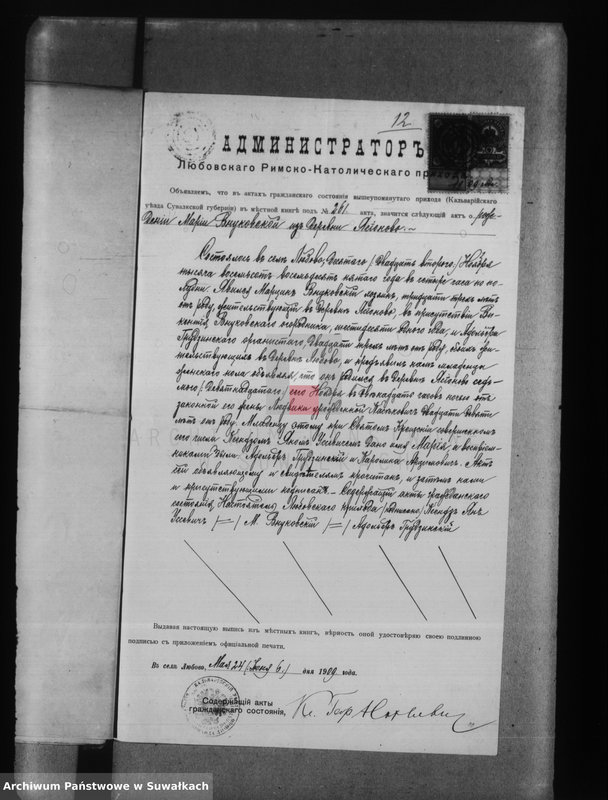 12
АДМИНИСТРАТОРЪ
Любовскаго Римско-Католическаго прихода
Объявляем, что въ актахъ гражданскаго состоянія вышеупомянутаго прихода (Кальварійскаго
уѣзда Сувалкской губерніи) въ мѣстной книгѣ подъ № 261 акта, значится слѣдующій актъ о рож-
деніи Маріи Внуковской изъ деревни
Состоялось въ селѣ Любово, Десятаго / Двадцать второго / Ноября
тысяча восемьсотъ восемьдесятъ пятаго года въ четыре часа по по-
лудни. Явился Марцинъ Внуковскій тридцати трехъ лѣтъ
отъ роду, жительствующій въ деревнѣ въ присутствіи Ви-
кентія Внуковскаго огородника, шестидесяти одного года, и Адольфа
Грудзинскаго органиста, двадцати трехъ лѣтъ отъ роду, обоихъ жи-
тельствующихъ въ деревнѣ Любово, и предъявилъ намъ младенца
женскаго пола объявляя, что онъ родился въ деревнѣ седь-
мого / Девятнадцатаго / сего Ноября въ двѣнадцать часовъ ночью отъ
законной его жены Людвики урожденной двадцати девяти
лѣтъ отъ роду. Младенцу этому при Святомъ Крещеніи совершенномъ
сего числа Ксендзомъ Яномъ дано имя Марія, а воспріем-
никами были Адольфъ Грудзинскій и Каролина Актъ
сей объявляющему и свидѣтелямъ прочитанъ, и затѣмъ нами
и присутствующими подписанъ. – Содержащій акты гражданскаго
состоянія, Настоятель Любовскаго прихода / подписано / Ксендзъ Янъ
/=/ М. Внуковскій /=/ Адольфъ Грудзинскій
Выдавая настоящую выпись изъ мѣстныхъ книгъ, вѣрность оной удостовѣряю своею подлинною
подписью съ приложеніемъ официальной печати.
Въ селѣ Любово, Мая 24 (Іюня 6.) дня 1909 года.
Содержащій акты
гражданскаго состоянія,
Archiwum Państwowe w Suwałkach